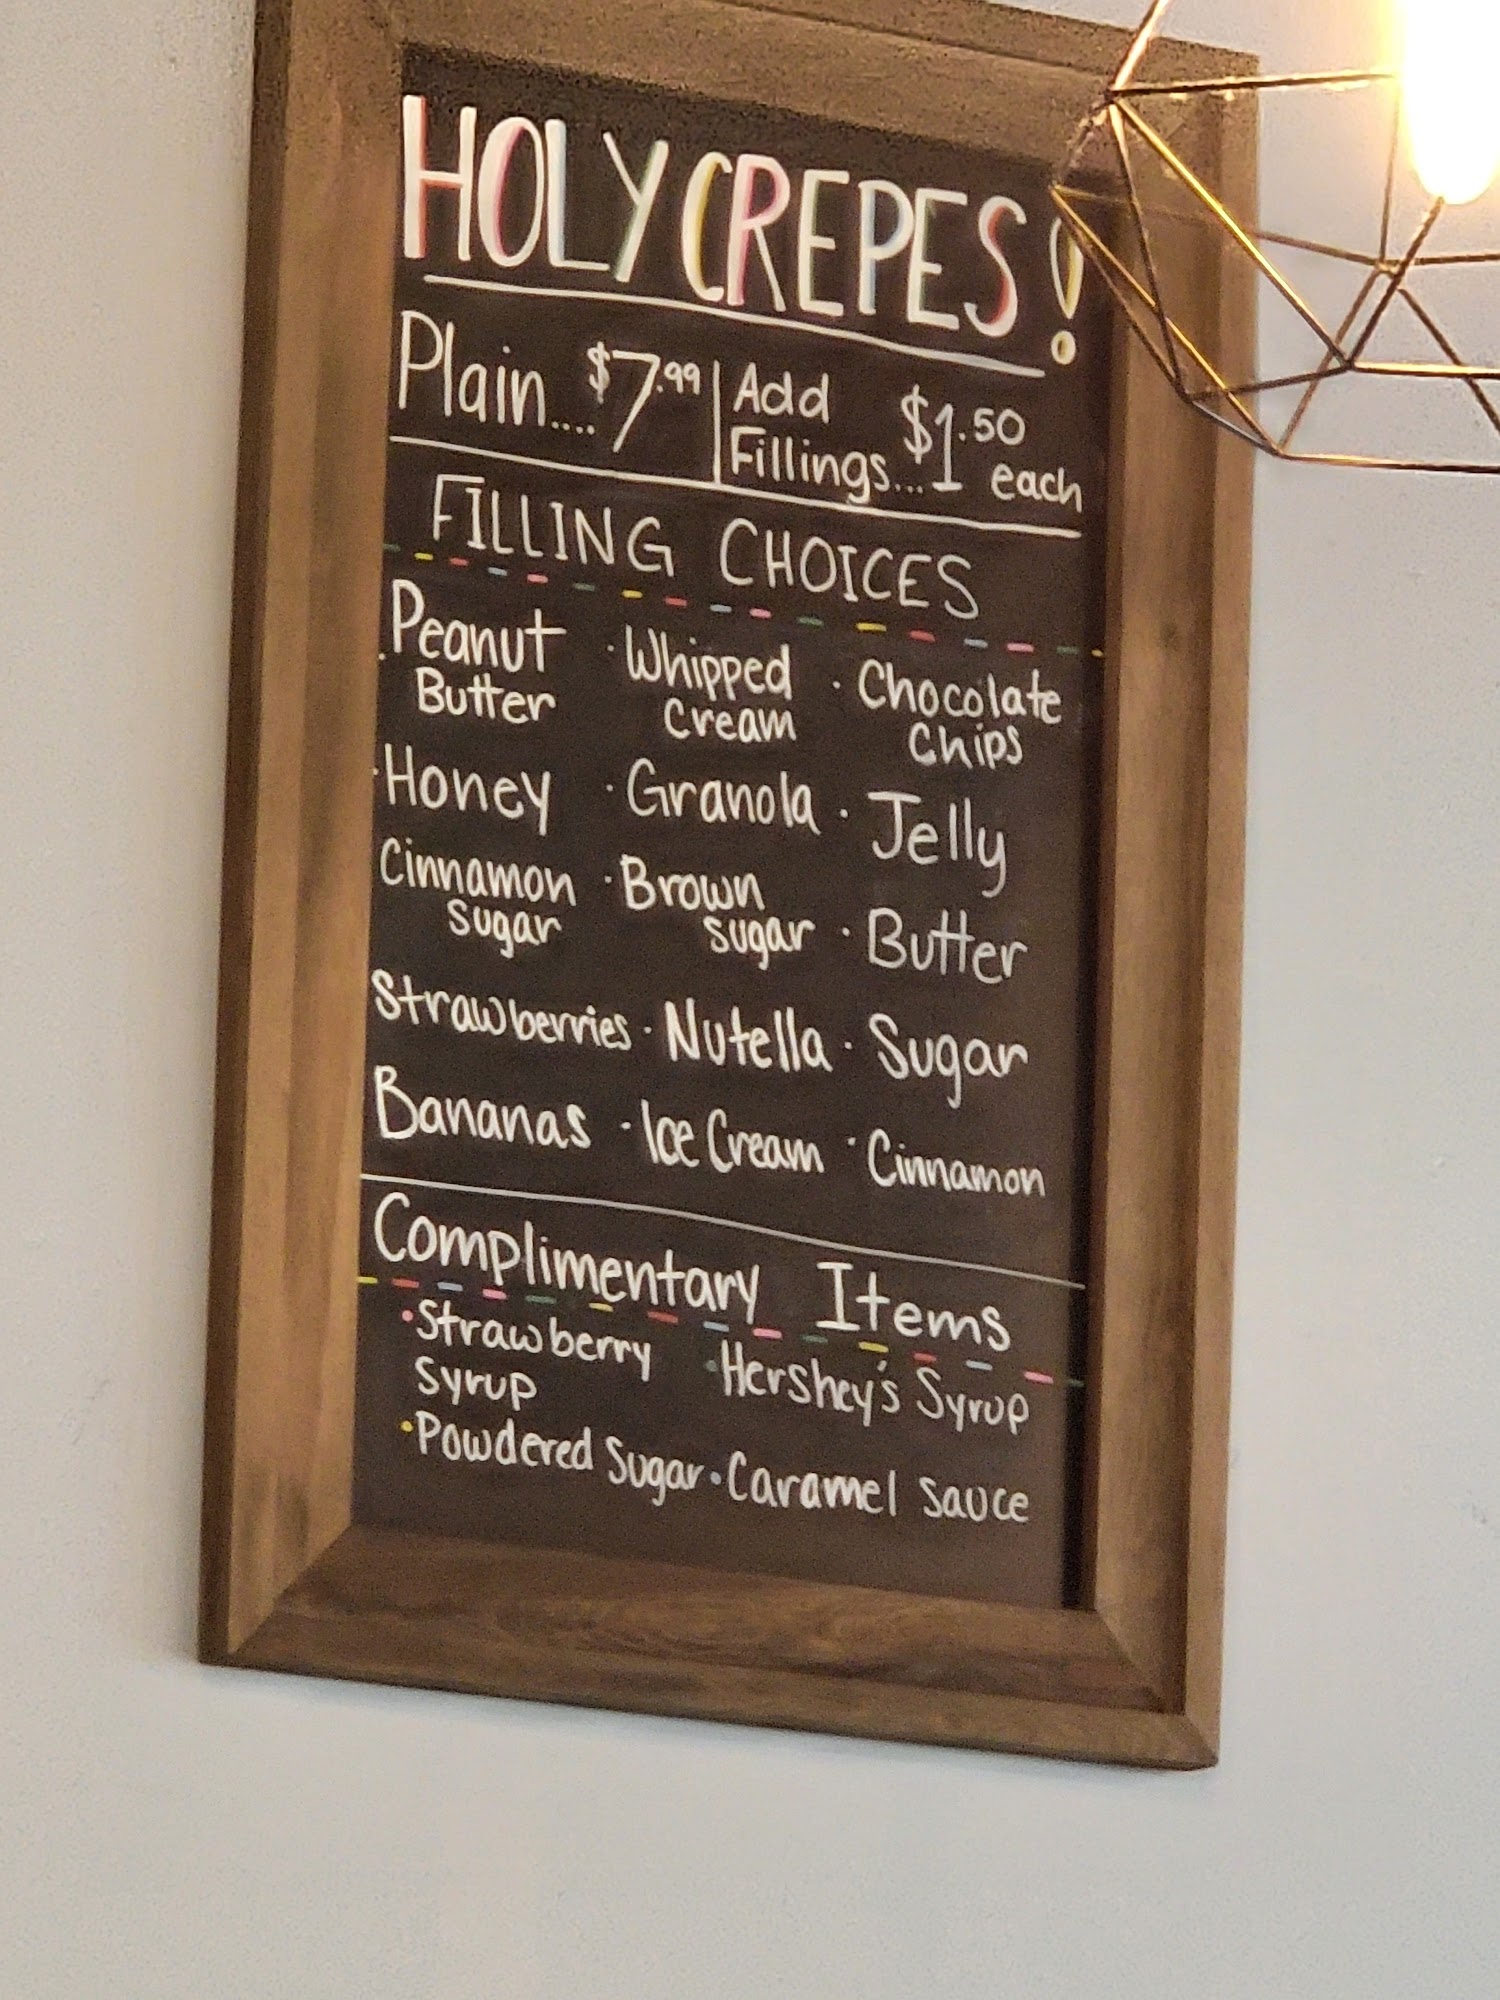 HOLY CREPES!
Plain.... $7.99 | Add Fillings... $1.50 each
FILLING CHOICES
· Peanut Butter · Whipped Cream · Chocolate Chips
· Honey · Granola · Jelly
Cinnamon Sugar · Brown Sugar · Butter
Strawberries · Nutella · Sugar
Bananas · Ice Cream · Cinnamon
Complimentary Items
· Strawberry Syrup · Hershey's Syrup
· Powdered Sugar · Caramel Sauce